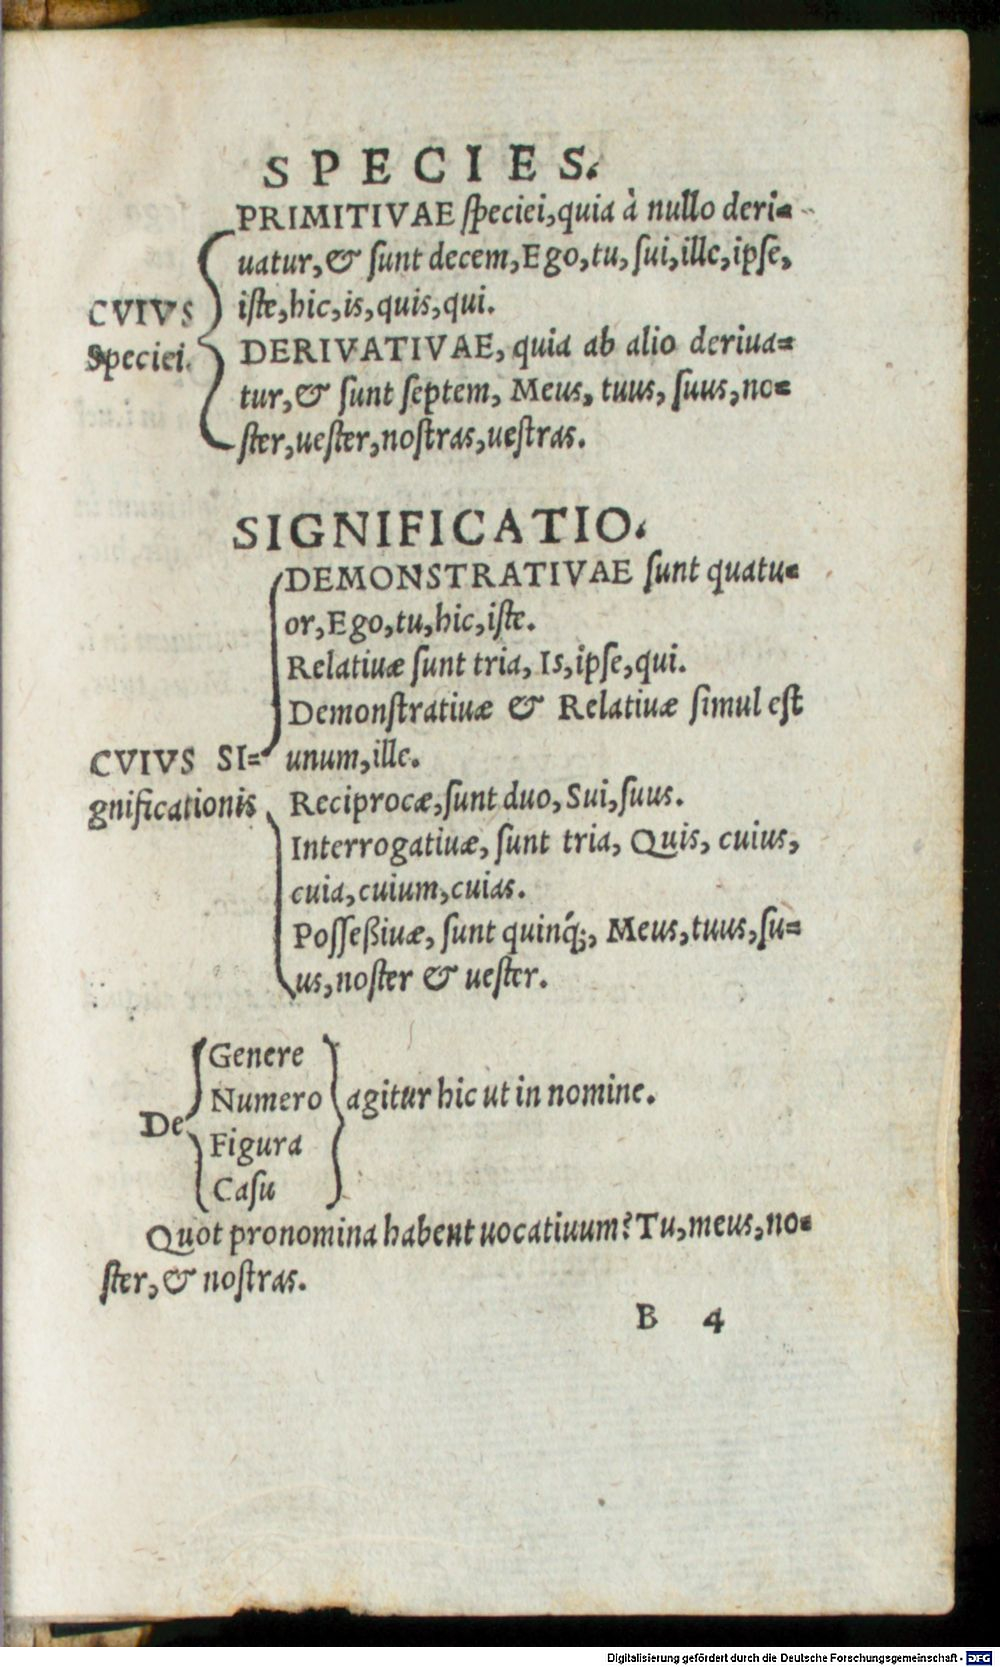 SPECIES.
PRIMITIVAE ſpeciei, quia à nullo deri=
uatur, & ſunt decem, Ego, tu, ſui, ille, ipſe,
CVIVS iſte, hic, is, quis, qui.
Speciei. DERIVATIVAE, quia ab alio deriua=
tur, & ſunt ſeptem, Meus, tuus, ſuus, no=
ſter, ueſter, noſtras, ueſtras.
SIGNIFICATIO.
DEMONSTRATIVAE ſunt quatu=
or, Ego, tu, hic, iſte.
Relatiuæ ſunt tria, Is, ipſe, qui.
Demonſtratiuæ & Relatiuæ ſimul eſt
CVIVS SI= unum, ille.
gnificationis Reciprocæ, ſunt duo, Sui, ſuus.
Interrogatiuæ, ſunt tria, Quis, cuius,
cuia, cuium, cuias.
Poſſeßiuæ, ſunt quinq́;, Meus, tuus, ſu=
us, noſter & ueſter.
Genere
Numero agitur hic ut in nomine.
De
Figura
Caſu
Quot pronomina habent uocatiuum? Tu, meus, no=
ſter, & noſtras.
B 4
Digitalisierung gefördert durch die Deutsche Forschungsgemeinschaft - DFG